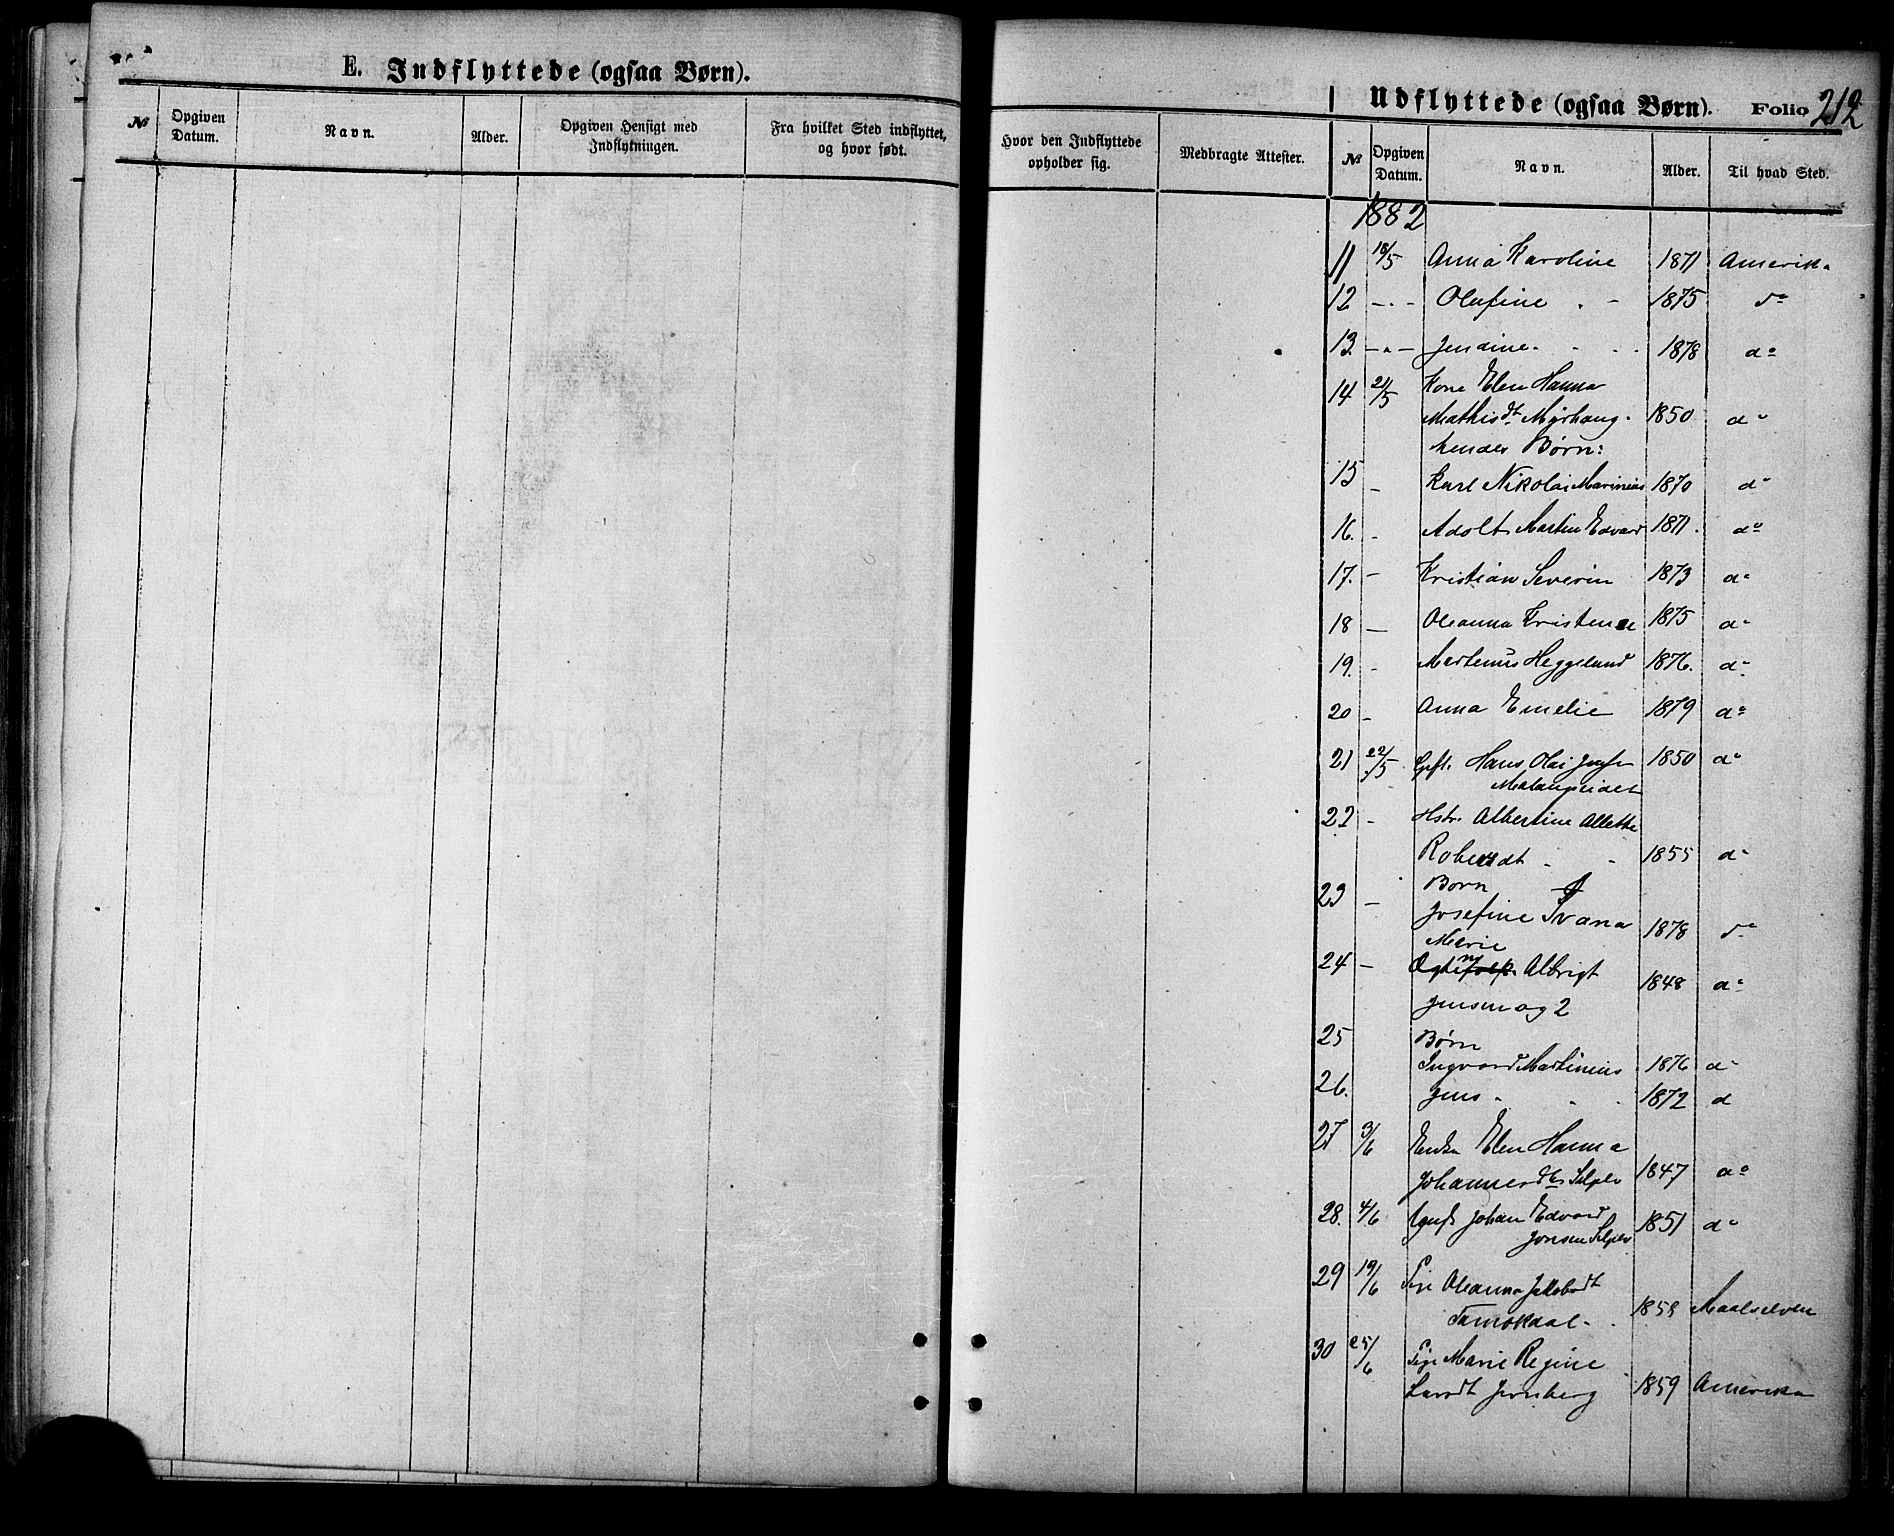 E. Indflyttede (ogsaa Børn).
№ Opgiven Datum. Navn. Alder. Opgiven Hensigt med Indflytningen. Fra hvilket Sted indflyttet, og hvor født.
Udflyttede (ogsaa Børn). Folio 212
Hvor den Indflyttede opholder sig. Medbragte Attester. № Opgiven Datum. Navn. Alder. Til hvad Sted.
1882
11 18/5 Anna Karoline 1871 Amerika
12 — . — Olufine . - 1875 do
13 — . — Jendine . . . 1878 do
14 21/5 Kone Elen Hanna
Mathisdt Myrhaug . 1850 do
hendes Børn:
15 — Karl Nikolai Marinius 1870 do
16. - Adolf Martin Edvard 1871. do
17. - Kristian Severin 1873 do
18 — Oleanna Kristense 1875 do
19. - Martenus Heggelund 1876. do
20 - Anna Emelie 1879 do
21 22/5 Hans Olai 1850 do
Malangseidet
22 - Hstr. Albertine Allette
Roberdt - - 1855 do
23 — Børn
Josefine Ivana 1878 do
Marie
24 — Albrigt 1848 do
Jensen og 2
25 Børn
Ingvard Martinius 1876 do
26. Jens . . . 1872 d
27 3/6 Enke Elen Hanna
Johannesdtr 1847 do
28. 4/6 Johan Edvard 1851 do
Jonsen
29 19/6 Pige Oleanna Jakobsdt
Tamokdal - . Maalselven
30 25/6 Pige Marie Regine
Larsdt Jernberg 1859 Amerika